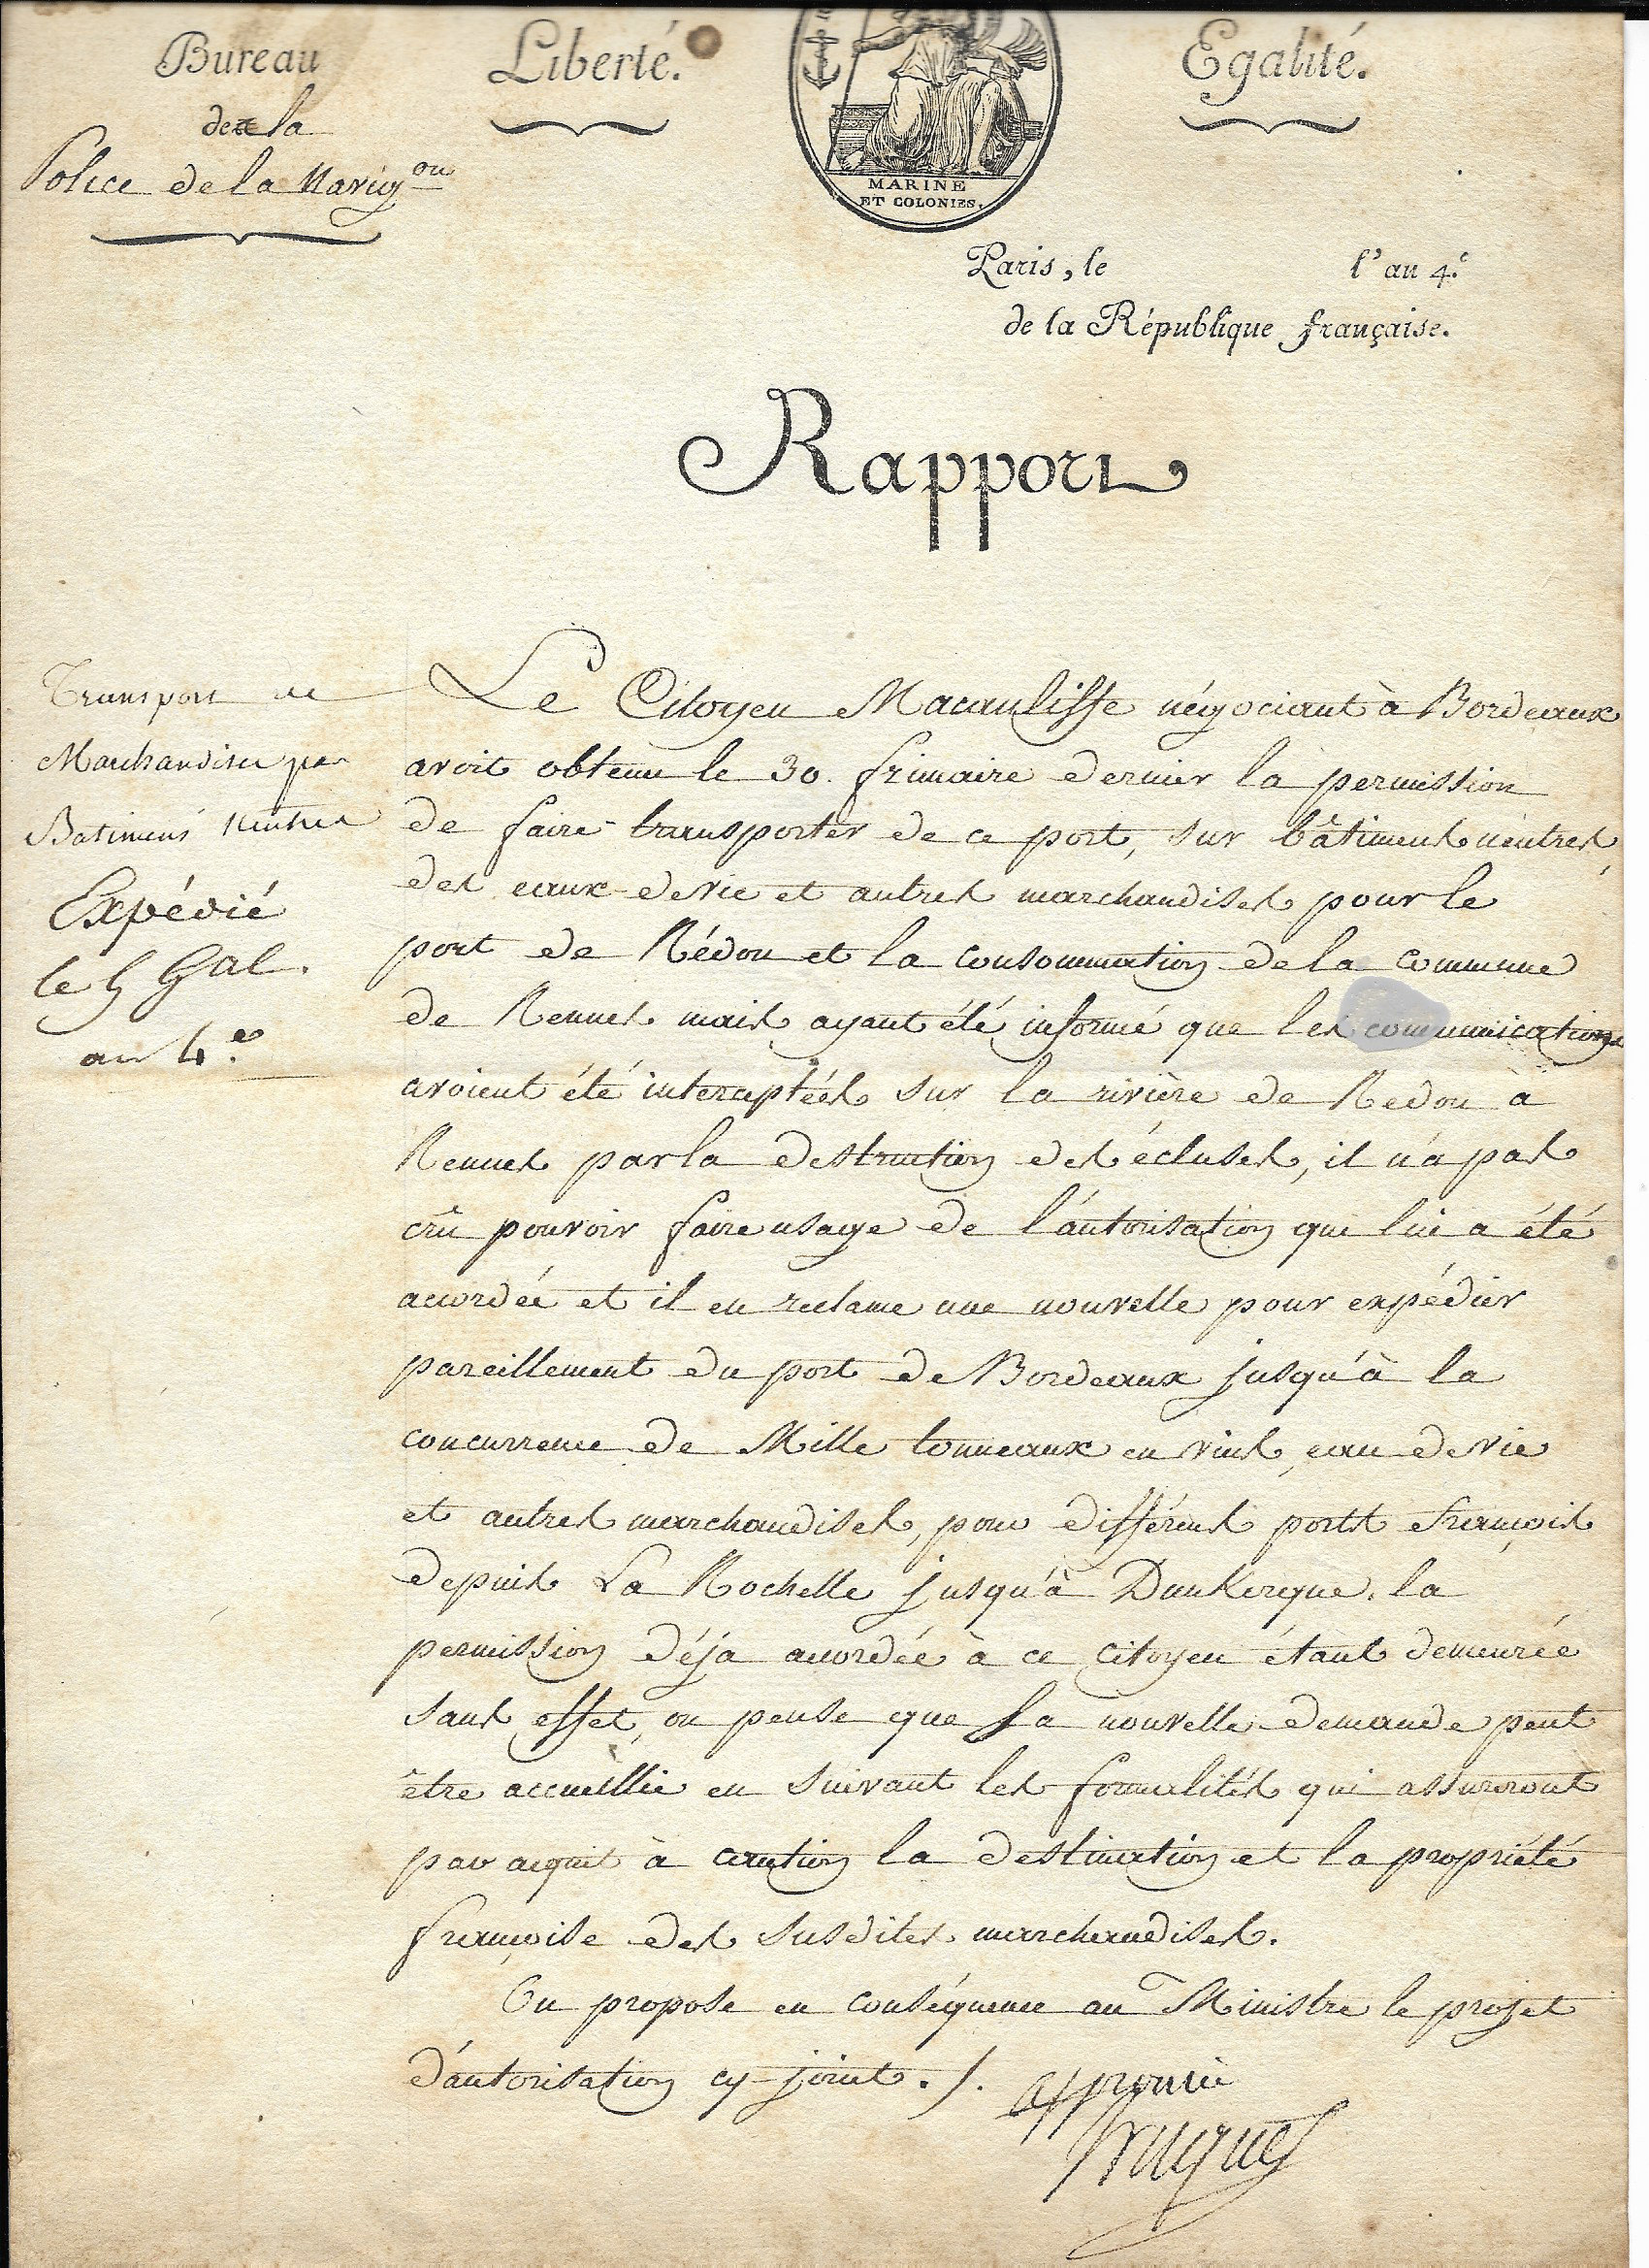 Bureau
de la
Police de la Navig.on
Liberté.
MARINE
ET COLONIES.
Egalité.
Paris, le l'an 4.e
de la République française.
Rapport
Transport de
Marchandises par
Batimens neutres
Expédié
le 5 Gal.
an 4.e
Le Citoyen Macauliffe négociant à Bordeaux
avoit obtenu le 30. frimaire dernier la permission
de faire transporter de ce port, sur bâtimens neutres,
des eaux-de vie et autres marchandises pour le
port de Rédon et la consommation de la commune
de Rennes mais ayant été informé que les communications
avoient été interceptées sur la rivière de Redon à
Rennes par la destruction des écluses, il n'a pas
crû pouvoir faire usage de l'autorisation qui lui a été
accordée et il en reclame une nouvelle pour expédier
pareillement du port de Bordeaux jusqu'à la
concurrence de Mille tonneaux en vins, eau de vie
et autres marchandises, pour différens ports françois
depuis La Rochelle jusqu'à Dunkerque. la
permission déja accordée à ce citoyen étant demeurée
sans effet, on pense que sa nouvelle demande peut
être accueillie en suivant les formalités qui assureront
par acquit à caution la destination et la propriété
françoise des susdites marchandises.
On propose en conséquence au Ministre le projet
d'autorisation cy-joint ./.
approuvé
Truguet